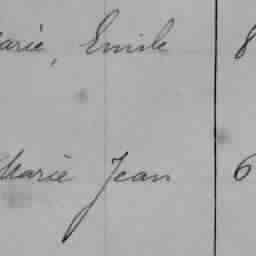 arie, Emile 8
Marie Jean 6